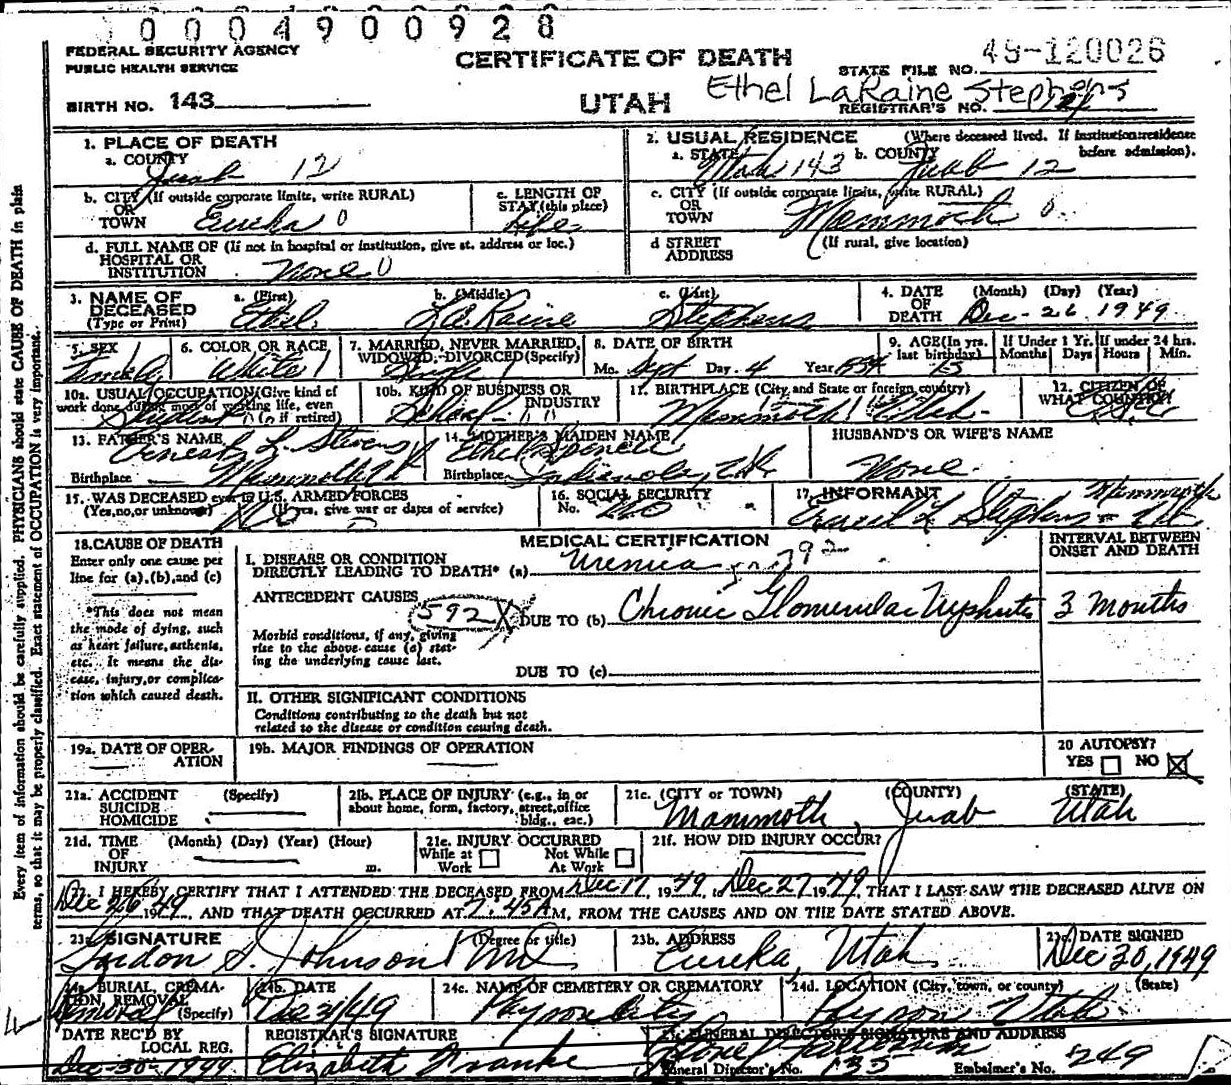 0004900928
FEDERAL SECURITY AGENCY
PUBLIC HEALTH SERVICE
CERTIFICATE OF DEATH
STATE FILE NO. 49-120026
BIRTH NO. 143
UTAH
Ethel LaRaine Stephens
REGISTRAR'S NO.
1. PLACE OF DEATH
a. COUNTY
Juab 12
2. USUAL RESIDENCE (Where deceased lived. If institution: residence before admission).
a. STATE Utah 143 b. COUNTY Juab 12
b. CITY (If outside corporate limits, write RURAL)
OR
TOWN Eureka 0
c. LENGTH OF
STAY (this place)
Life
c. CITY (If outside corporate limits, write RURAL)
OR
TOWN Mammoth 0
d. FULL NAME OF (If not in hospital or institution, give st. address or loc.)
HOSPITAL OR
INSTITUTION None 0
d STREET
ADDRESS
(If rural, give location)
3. NAME OF
DECEASED
(Type or Print)
a. (First) Ethel
b. (Middle) LaRaine
c. (Last) Stephens
4. DATE
OF
DEATH
(Month) (Day) (Year)
Dec-26-1949
5. SEX
Female
6. COLOR OR RACE
White 1
7. MARRIED, NEVER MARRIED,
WIDOWED, DIVORCED (Specify)
Single 1
8. DATE OF BIRTH
Mo. Sept Day 4 Year
9. AGE (In yrs.
last birthday)
15
If Under 1 Yr.
Months Days
If under 24 hrs.
Hours Min.
10a. USUAL OCCUPATION (Give kind of
work done during most of working life, even
if retired)
Student
10b. KIND OF BUSINESS OR
INDUSTRY
School
11. BIRTHPLACE (City and State or foreign country)
Mammoth Utah
12. CITIZEN OF
WHAT COUNTRY?
13. FATHER'S NAME
Ernest L. Stevens
Birthplace Mammoth Ut
14. MOTHER'S MAIDEN NAME
Ethel
Birthplace Indianola, Ut
HUSBAND'S OR WIFE'S NAME
None
15. WAS DECEASED ever in U.S. ARMED FORCES
(Yes, no, or unknown) (If yes, give war or dates of service)
No
16. SOCIAL SECURITY
No. No
17. INFORMANT
L Stephens - Mammoth Ut
18. CAUSE OF DEATH
Enter only one cause per
line for (a), (b), and (c)
*This does not mean
the mode of dying, such
as heart failure, asthenia,
etc. It means the dis-
ease, injury, or complica-
tion which caused death.
MEDICAL CERTIFICATION
I. DISEASE OR CONDITION
DIRECTLY LEADING TO DEATH* (a) Uremia
ANTECEDENT CAUSES
592X
DUE TO (b) Chronic Glomerular Nephritis
Morbid conditions, if any, giving
rise to the above cause (a) stat-
ing the underlying cause last.
DUE TO (c)
II. OTHER SIGNIFICANT CONDITIONS
Conditions contributing to the death but not
related to the disease or condition causing death.
INTERVAL BETWEEN
ONSET AND DEATH
3 Months
19a. DATE OF OPER-
ATION
19b. MAJOR FINDINGS OF OPERATION
20 AUTOPSY?
YES NO
21a. ACCIDENT
SUICIDE
HOMICIDE
(Specify)
21b. PLACE OF INJURY (e.g., in or
about home, form, factory, street, office
bldg., etc.)
21c. (CITY or TOWN) (COUNTY) (STATE)
Mammoth, Juab Utah
21d. TIME
OF
INJURY
(Month) (Day) (Year) (Hour)
m.
21e. INJURY OCCURRED
While at
Work
Not While
At Work
21f. HOW DID INJURY OCCUR?
22. I HEREBY CERTIFY THAT I ATTENDED THE DECEASED FROM Dec 17, 1949, Dec 27 1949, THAT I LAST SAW THE DECEASED ALIVE ON
Dec 26 1949, AND THAT DEATH OCCURRED AT 7:45A M, FROM THE CAUSES AND ON THE DATE STATED ABOVE.
23a. SIGNATURE (Degree or title)
Gordon S. Johnson MD
23b. ADDRESS
Eureka, Utah
23c. DATE SIGNED
Dec 30, 1949
24a. BURIAL, CREMA-
TION, REMOVAL
(Specify)
Removal
24b. DATE
Dec 31/49
24c. NAME OF CEMETERY OR CREMATORY
Payson City
24d. LOCATION (City, town, or county) (State)
Payson Utah
DATE REC'D BY
LOCAL REG.
Dec-30-1949
REGISTRAR'S SIGNATURE
Elizabeth Franke
25. FUNERAL DIRECTOR'S SIGNATURE AND ADDRESS
Funeral Director's No. 135 Embalmer's No. 249
Every item of information should be carefully supplied. PHYSICIANS should state CAUSE OF DEATH in plain
terms, so that it may be properly classified. Exact statement of OCCUPATION is very important.